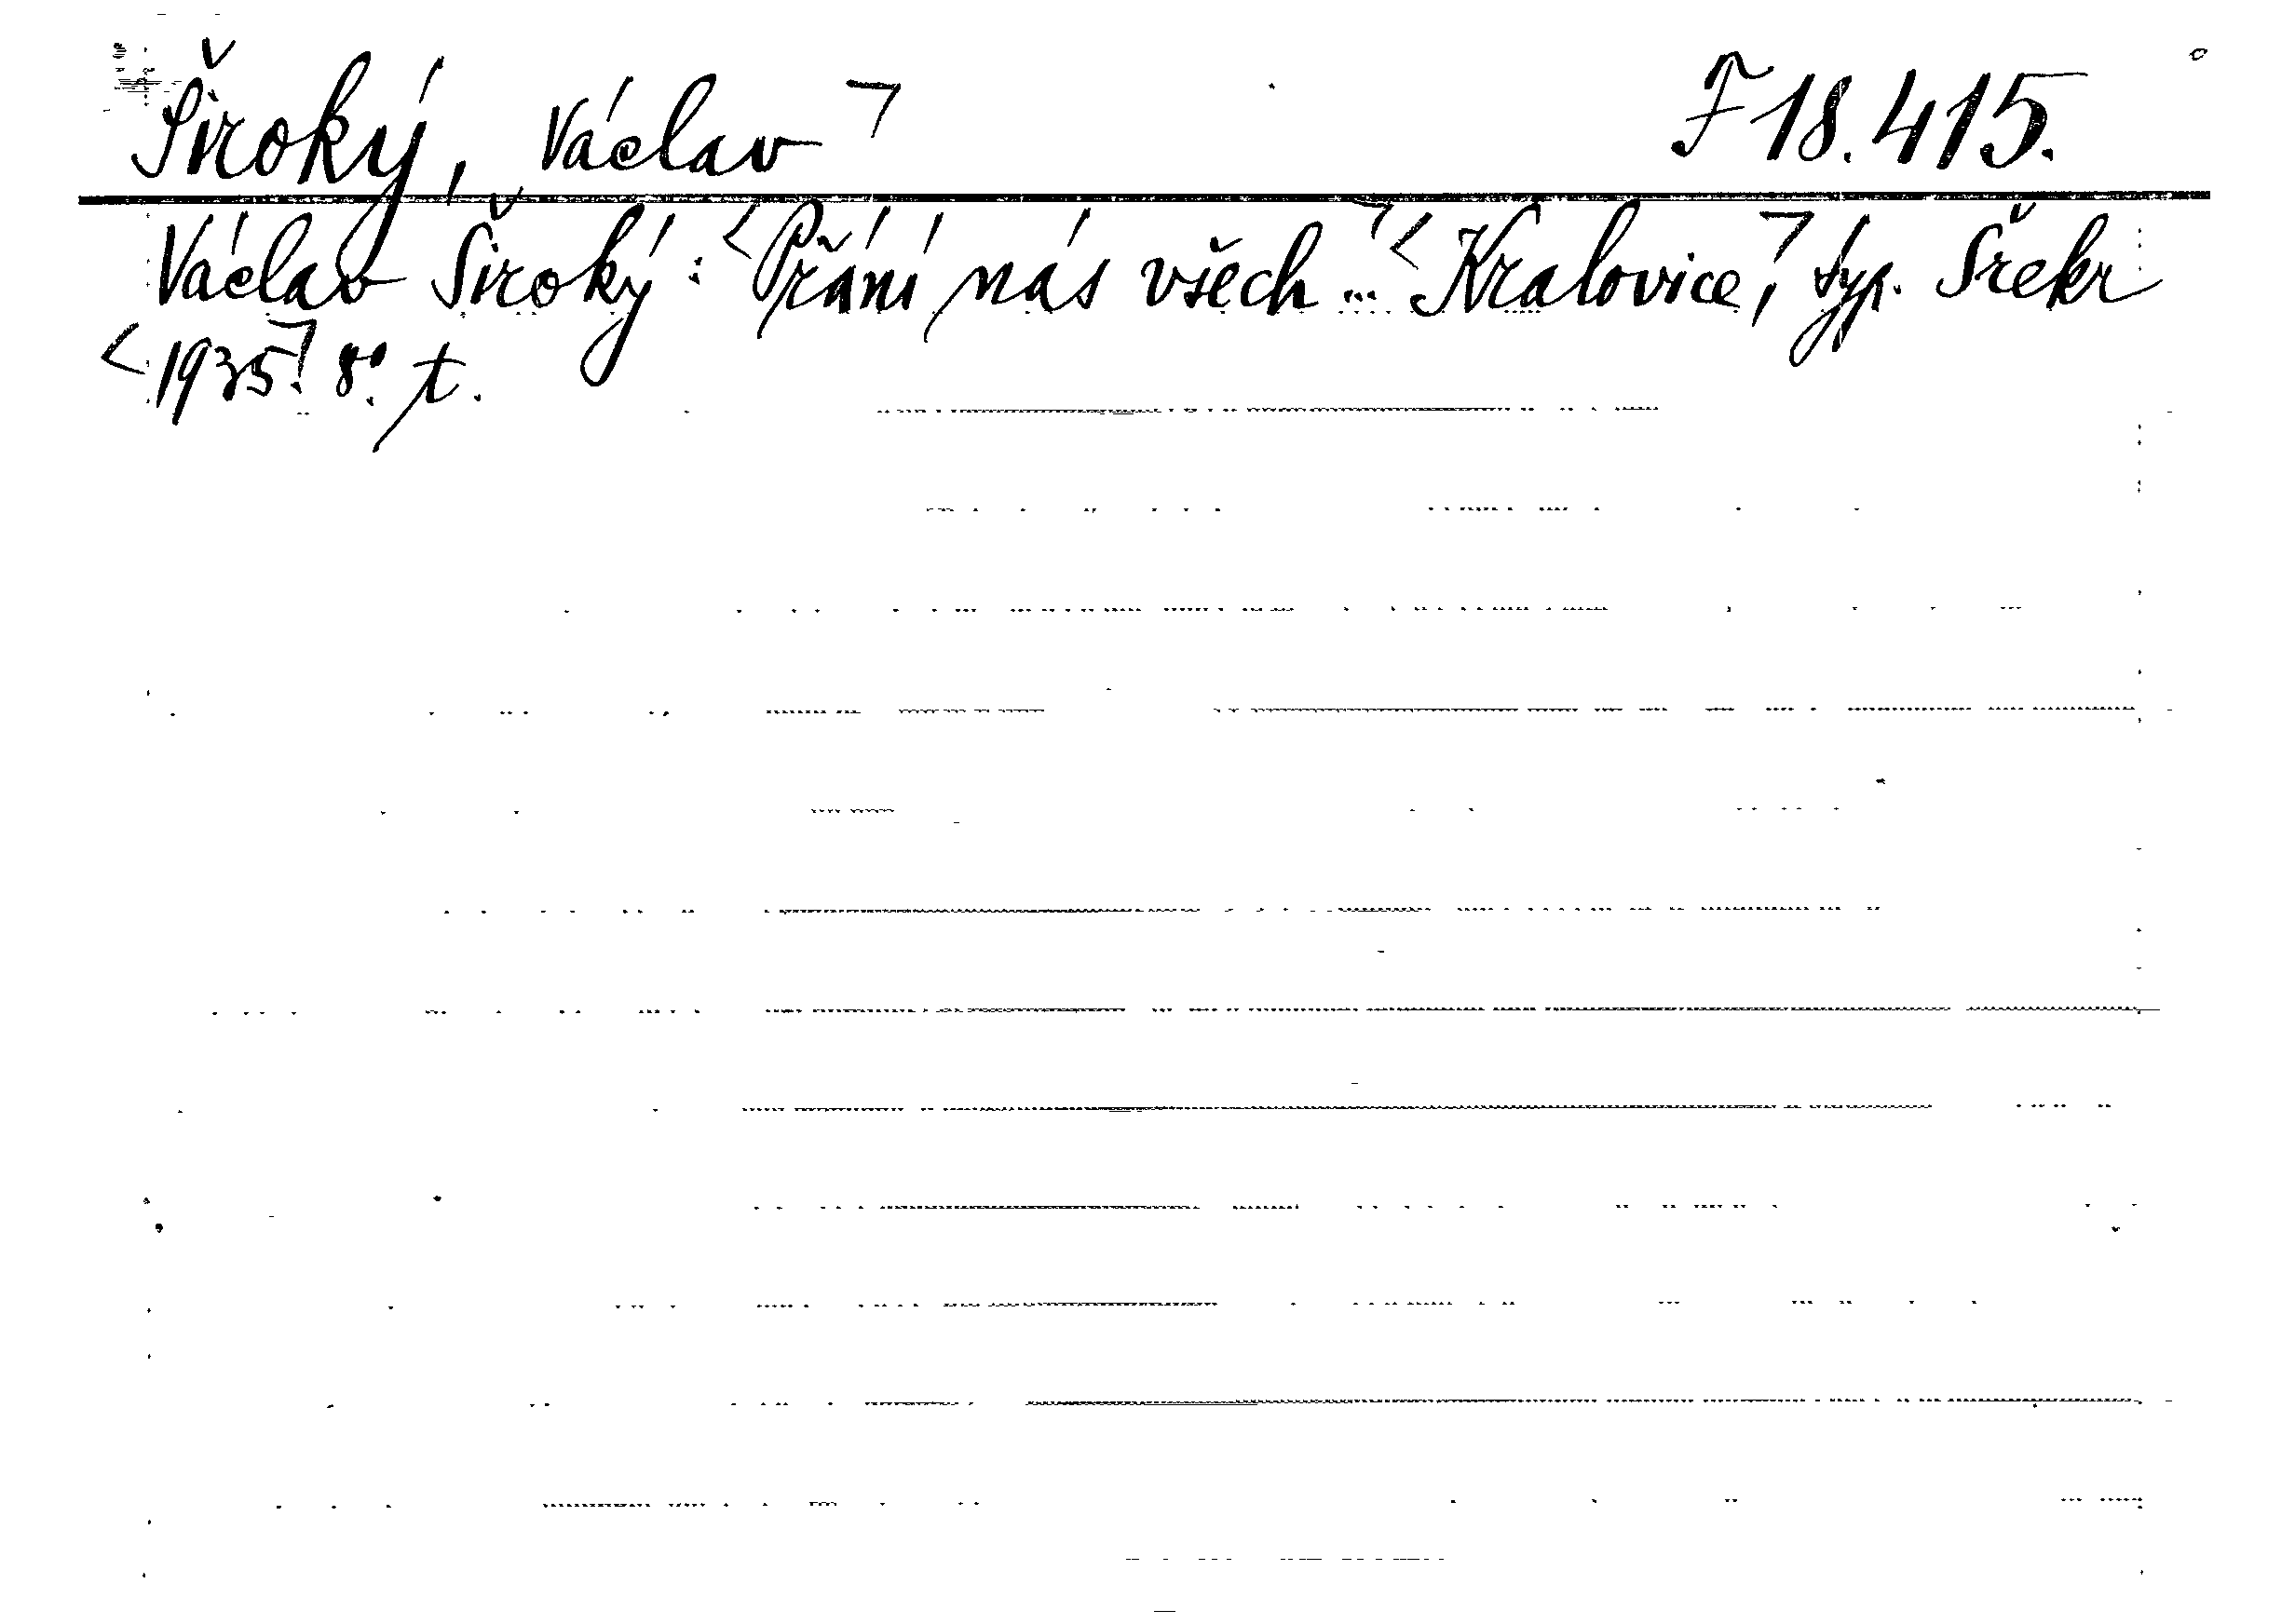 Široký, Václav ┐ F 18.415.
Václav Široký: <Přání nás všech...┐ <Kralovice,┐ typ. Šrekr
<1935.┐ 8°. t.